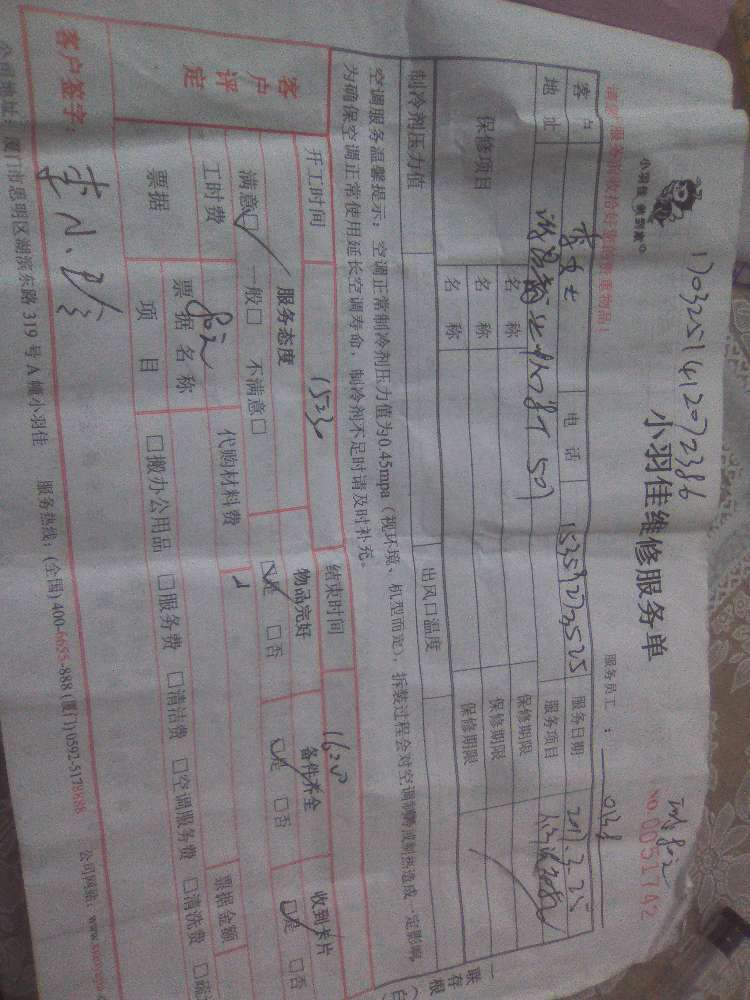 1703251412072386
小羽佳维修服务单
小羽佳
NO.0051742
服务员工：
客户 李女士 电话 服务日期 2017.3.25
地址 507 服务项目
保修项目 名称 保修期限
名称 保修期限
名称 保修期限
制冷剂压力值 出风口温度
空调服务温馨提示：空调正常制冷剂压力值为0.45mpa（视环境、机型而定），拆装过程会对空调制冷或制热造成一定影响，
为确保空调正常使用延长空调寿命，制冷剂不足时请及时补充。
开工时间 15:30 结束时间 16:00
客户评定 服务态度 物品完好 备件齐全 收到卡片
满意□ 一般□ 不满意□ □是 □否 □是 □否 □是 □否
工时费 80元 代购材料费
票据 票据名称 票据金额
项目 □搬办公用品 □服务费 □清洁费 □空调服务费 □清洗费
客户签字：
公司地址：厦门市思明区湖滨东路 319 号 A 幢小羽佳 服务热线：(全国)400-6655-888 (厦门)0592-5178888 公司网站：